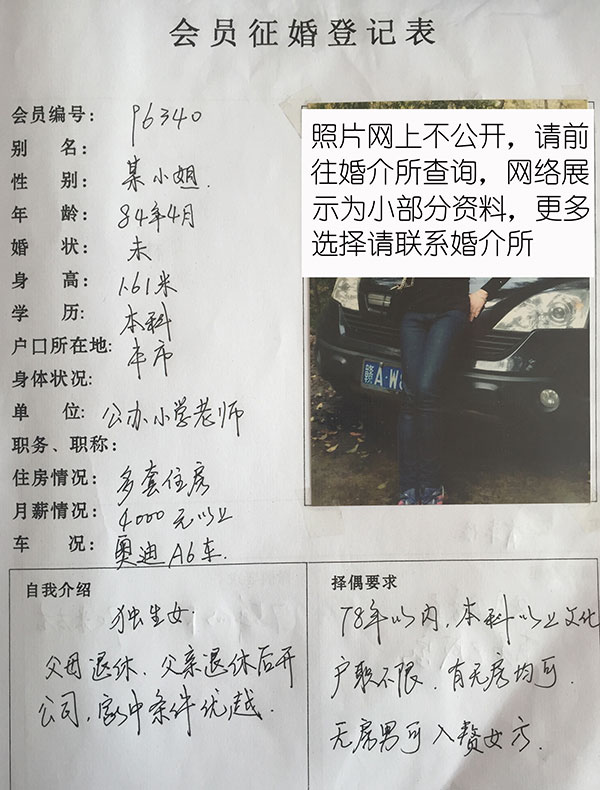 会员征婚登记表
会员编号: 96340
别 名:
性 别: 某小姐.
年 龄: 84年4月
婚 状: 未
身 高: 1.61米
学 历: 本科
户口所在地: 本市
身体状况:
单 位: 公办小学老师
职务、职称:
住房情况: 多套住房
月薪情况: 4000元以上
车 况: 奥迪A6车.
照片网上不公开，请前
往婚介所查询，网络展
示为小部分资料，更多
选择请联系婚介所
赣A·W8
自我介绍
独生女.
父母退休. 父亲退休后开
公司，家中条件优越.
择偶要求
78年以内，本科以上文化
户职不限. 有无房均可.
无房男可入赘女方.